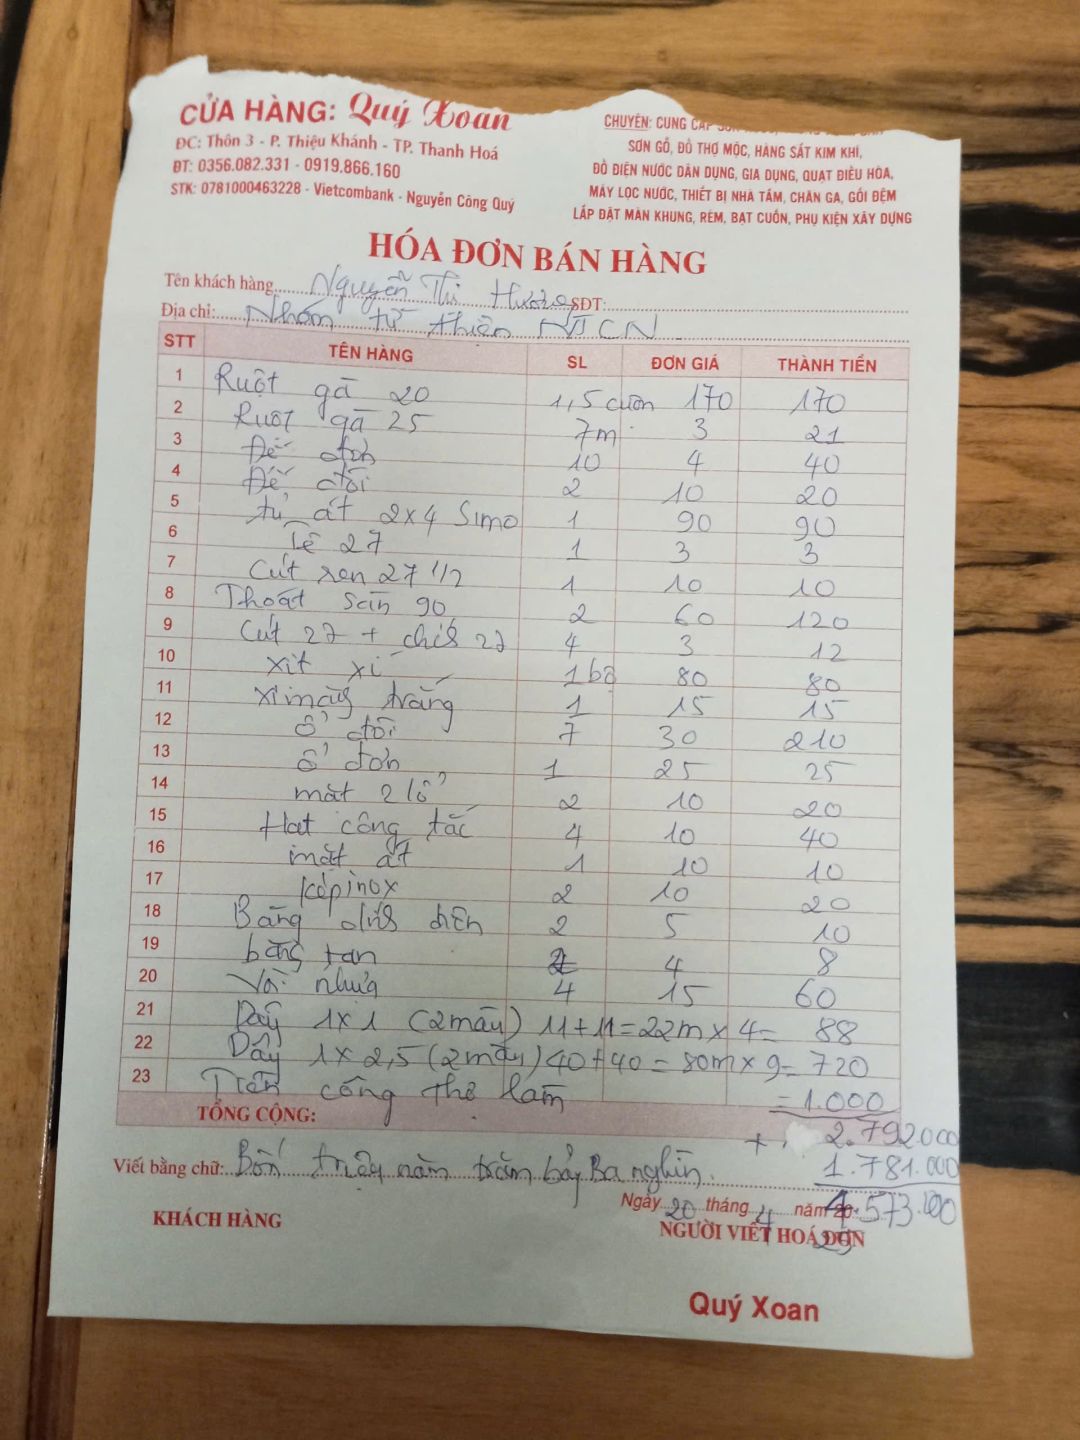 CỬA HÀNG: Quý Xoan
ĐC: Thôn 3 - P. Thiệu Khánh - TP. Thanh Hoá
ĐT: 0356.082.331 - 0919.866.160
STK: 0781000463228 - Vietcombank - Nguyễn Công Quý
CHUYÊN: CUNG CẤP SƠN
SƠN GỖ, ĐỒ THỢ MỘC, HÀNG SẮT KIM KHÍ,
ĐỒ ĐIỆN NƯỚC DÂN DỤNG, GIA DỤNG, QUẠT ĐIỀU HÒA,
MÁY LỌC NƯỚC, THIẾT BỊ NHÀ TẮM, CHĂN GA, GỐI ĐỆM
LẮP ĐẶT MÀN KHUNG, RÈM, BẠT CUỐN, PHỤ KIỆN XÂY DỰNG
HÓA ĐƠN BÁN HÀNG
Tên khách hàng Nguyễn Thị Hương SĐT:
Địa chỉ: Nhóm từ thiện NTCN
STT TÊN HÀNG SL ĐƠN GIÁ THÀNH TIỀN
1 Ruột gà 20 1,5 cuộn 170 170
2 Ruột gà 25 7m 3 21
3 Đế đơn 10 4 40
4 Đế đôi 2 10 20
5 tủ át 2x4 Simo 1 90 90
6 Tê 27 1 3 3
7 Cút ren 27 1/2 1 10 10
8 Thoát sàn 90 2 60 120
9 Cút 27 + chếch 27 4 3 12
10 xịt xí 1 bộ 80 80
11 ximăng trắng 1 15 15
12 ổ đôi 7 30 210
13 ổ đơn 1 25 25
14 mặt 2 lỗ 2 10 20
15 Hạt công tắc 4 10 40
16 mặt át 1 10 10
17 kép inox 2 10 20
18 Băng dính điện 2 5 10
19 băng tan 2 4 8
20 Vòi nhựa 4 15 60
21 Dây 1x1 (2 màu) 11+11=22m x 4= 88
22 Dây 1x2,5 (2 màu) 40+40=80m x 9= 720
23 Tiền công thợ làm =1.000
TỔNG CỘNG: + 2.792000
Viết bằng chữ: Bốn triệu năm trăm bảy Ba nghìn. 1.781.000
4.573.000
Ngày 20 tháng 4 năm 20 25
KHÁCH HÀNG
NGƯỜI VIẾT HOÁ ĐƠN
Quý Xoan